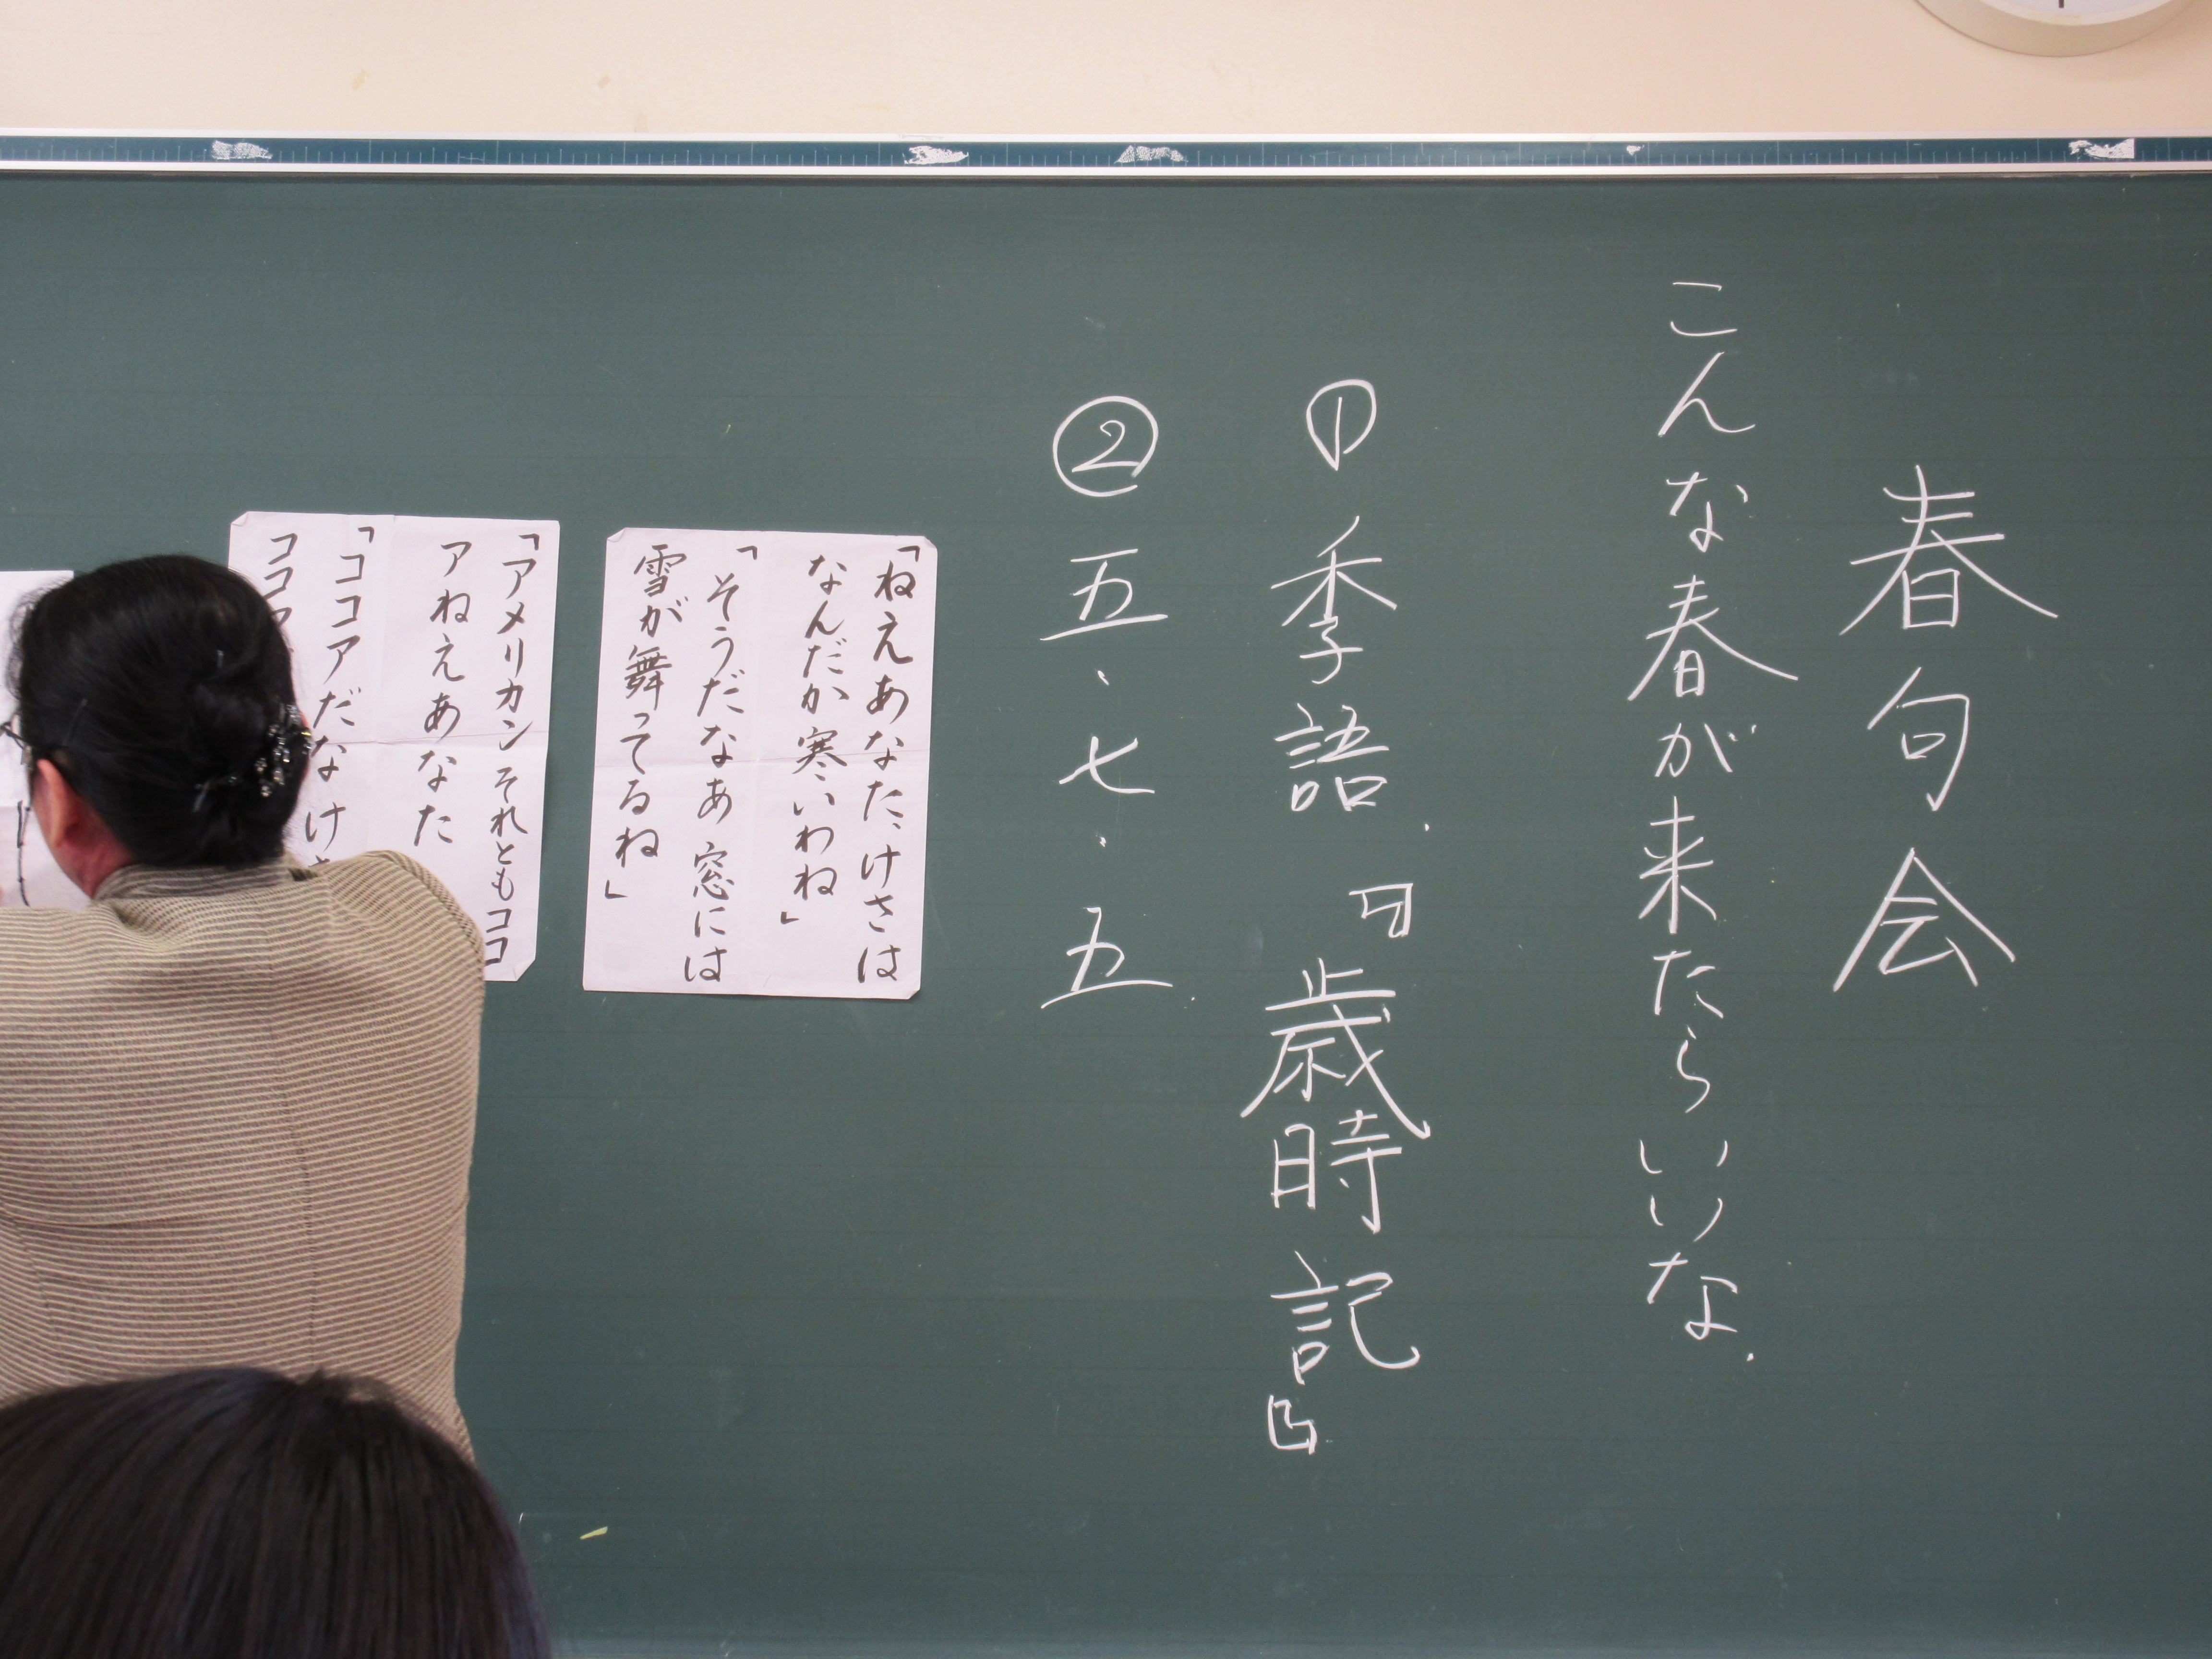 春句会
こんな春が来たらいいな.
① 季語.『歳時記』
② 五・七・五.
「ねえあなた、けさは
なんだか寒いわね」
「そうだなあ 窓には
雪が舞ってるね」
「アメリカン それともココ
アねえあなた
「ココアだなけ
ココ